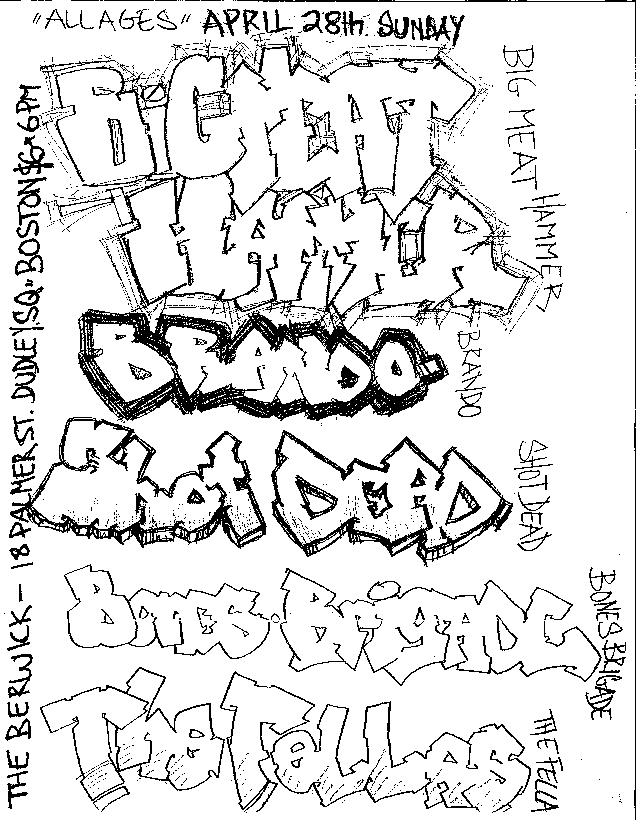 "ALL AGES" APRIL 28th. SUNDAY
BIG MEAT
HAMMER
BRANDO.
SHOT DEAD
BONES · BRIGADE
THE BERWICK – 18 PALMER ST. DUDLEY SQ. BOSTON $6 6PM
BIG MEAT HAMMER
BRANDO
SHOT DEAD
BONES BRIGADE
THE FELLA